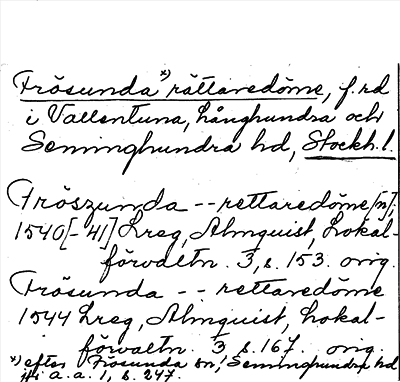 Frösunda *) rättaredöme, f.rd
i Vallentuna, Långhundra och
Seminghundra hd, Stockh. l.
Fröszunda -- rettaredöme [n];
1540[-41] Lreg, Almquist, Lokal-
förvaltn. 3, s. 153. orig.
Frösunda -- rettaredöme
1544 Lreg, Almquist, Lokal-
förvaltn. 3 s. 167. orig.
*) efter Frösunda sn, Seminghundra hd
a.a. 1, s. 247.